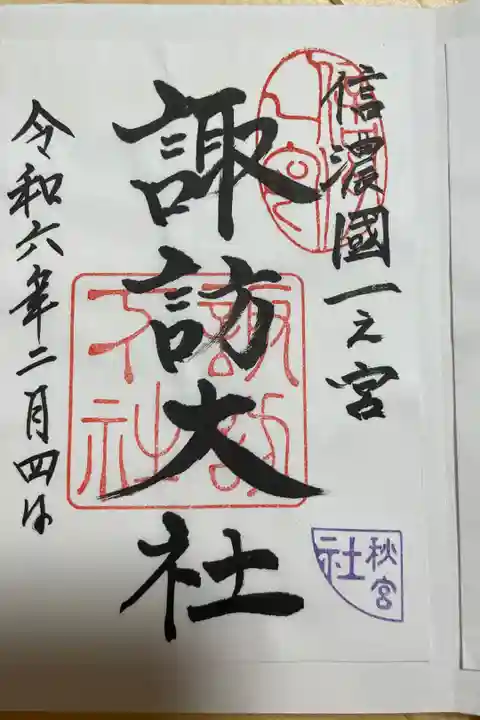 信濃國一之宮
諏訪大社
令和六年二月四日
諏訪
大社
秋宮
社